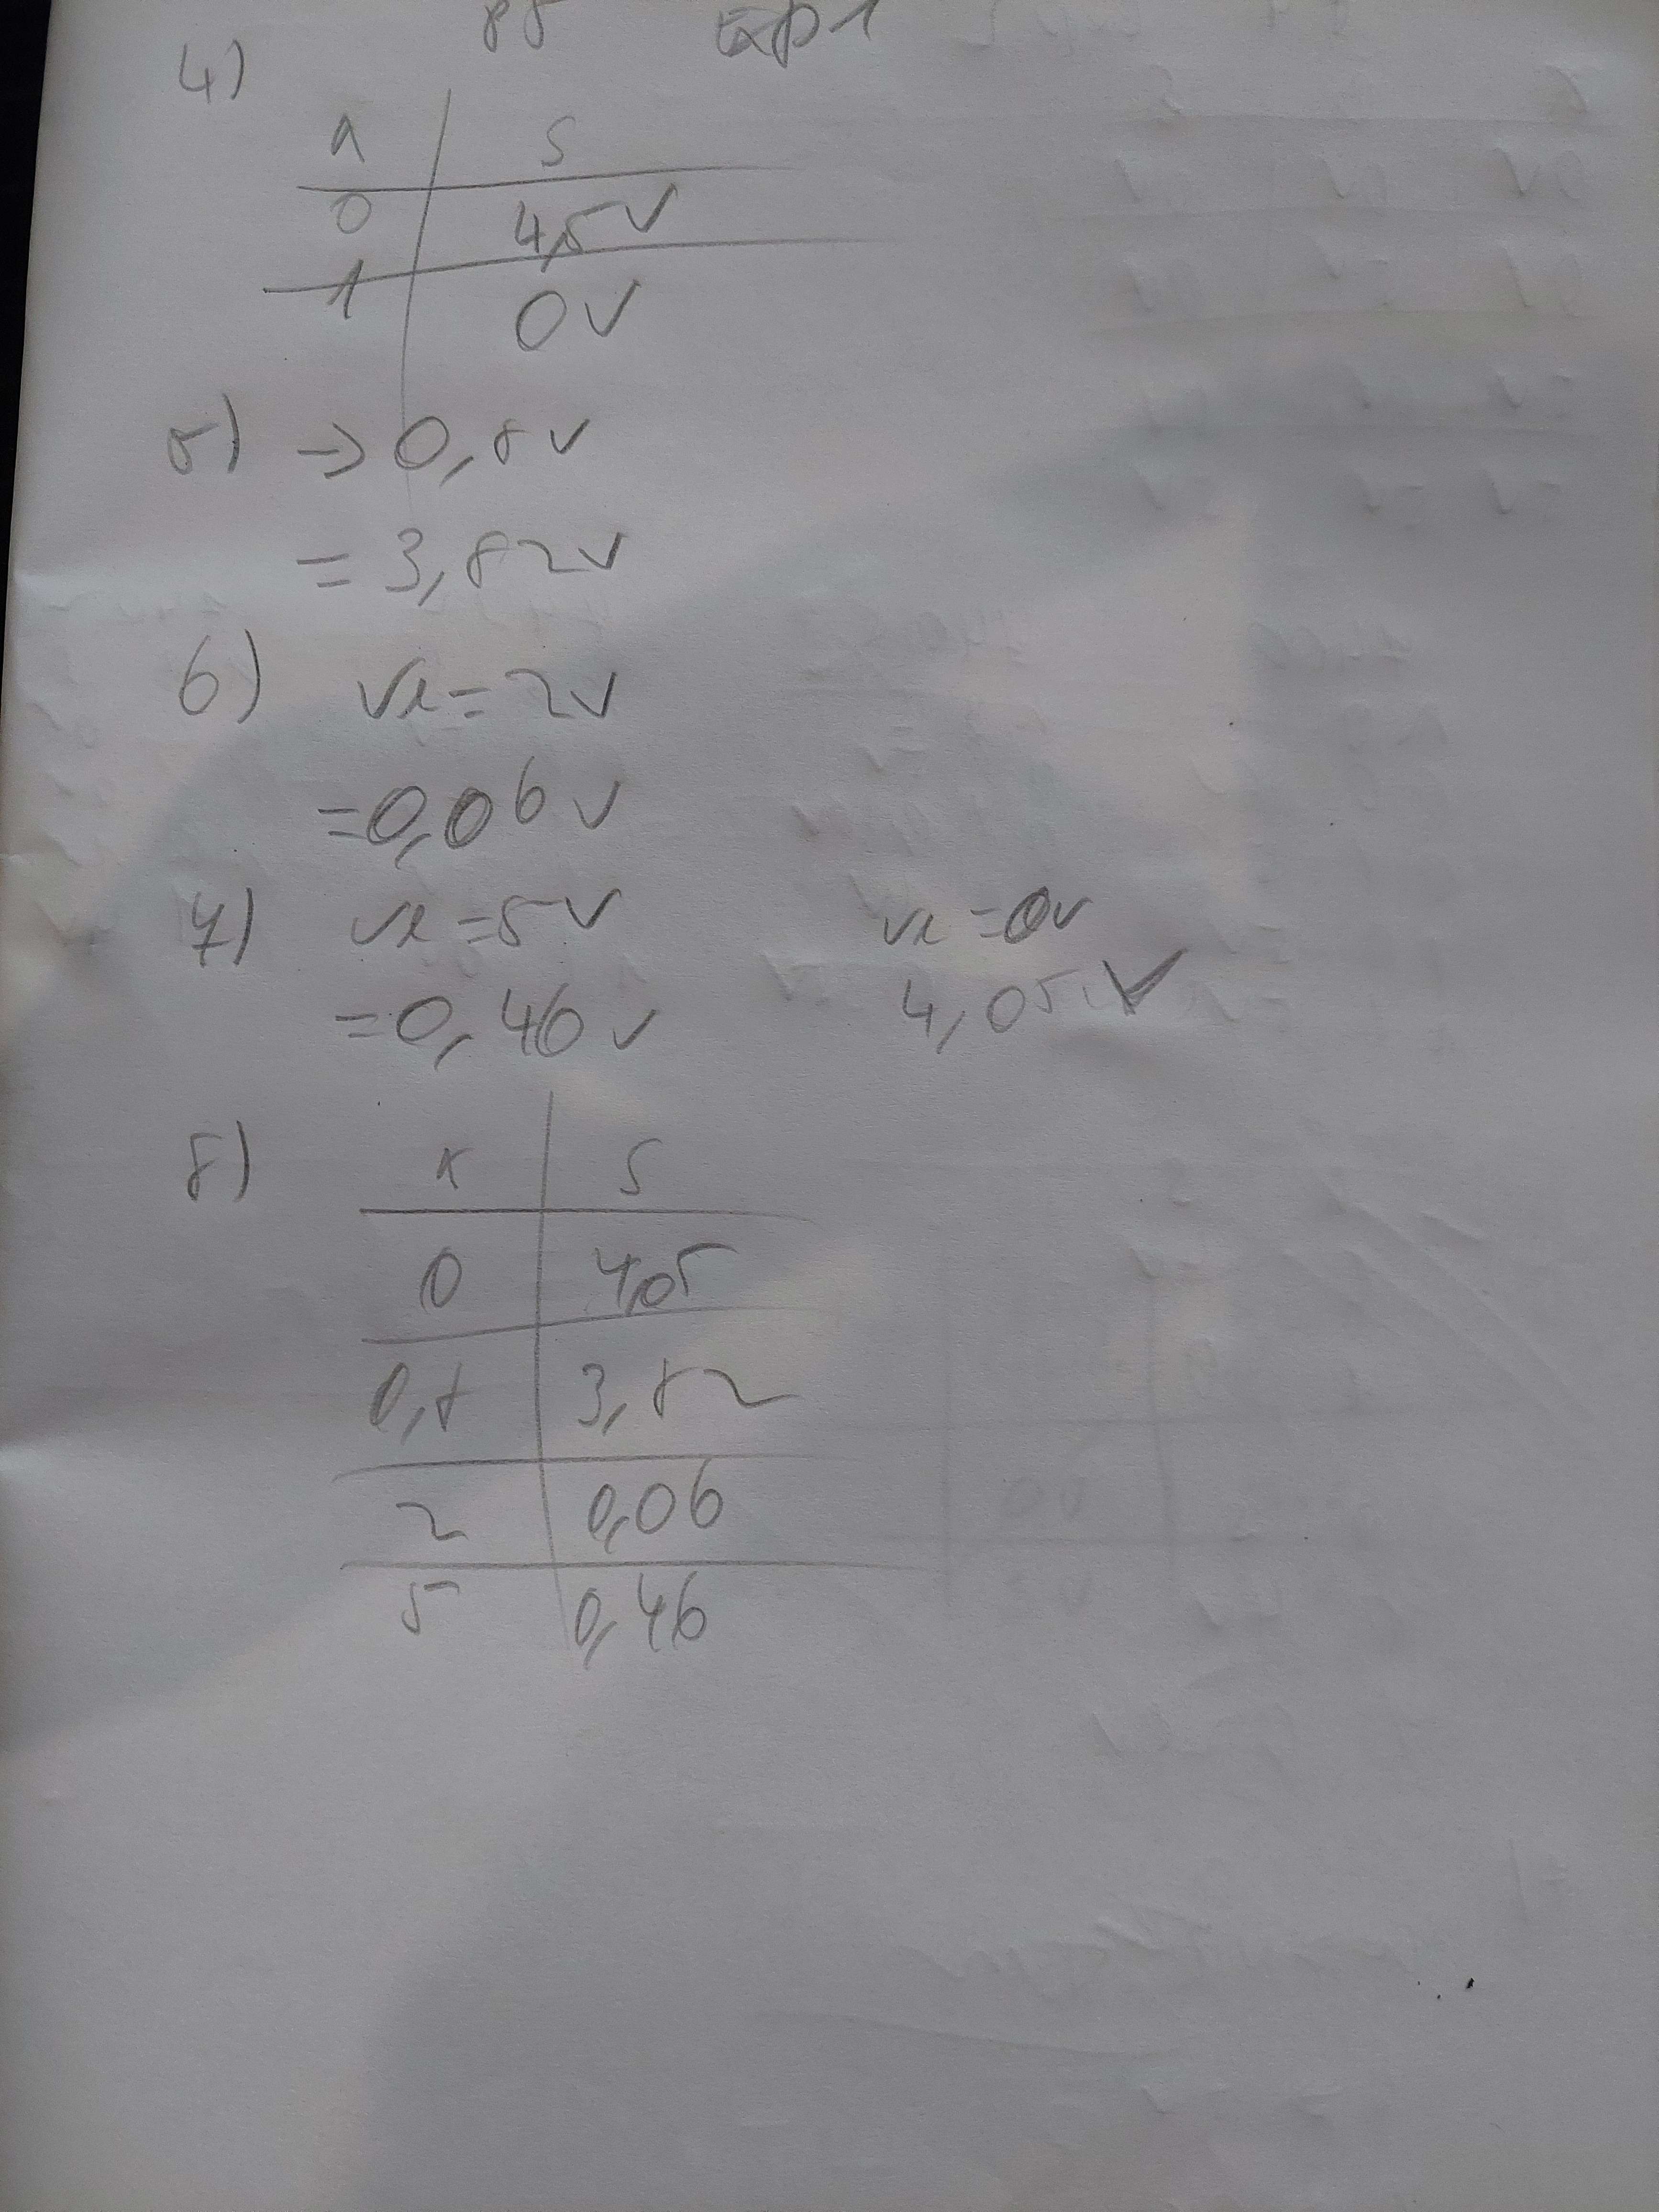 Exp 1
4)
A S
0 4,5V
1 0V
5) → 0,8V
= 3,82V
6) Ve = 2V
= 0,06V
7) Ve = 5V Ve = 0V
= 0,46V 4,05V
8) S
0 4,05
0,8 3,82
2 0,06
5 0,46